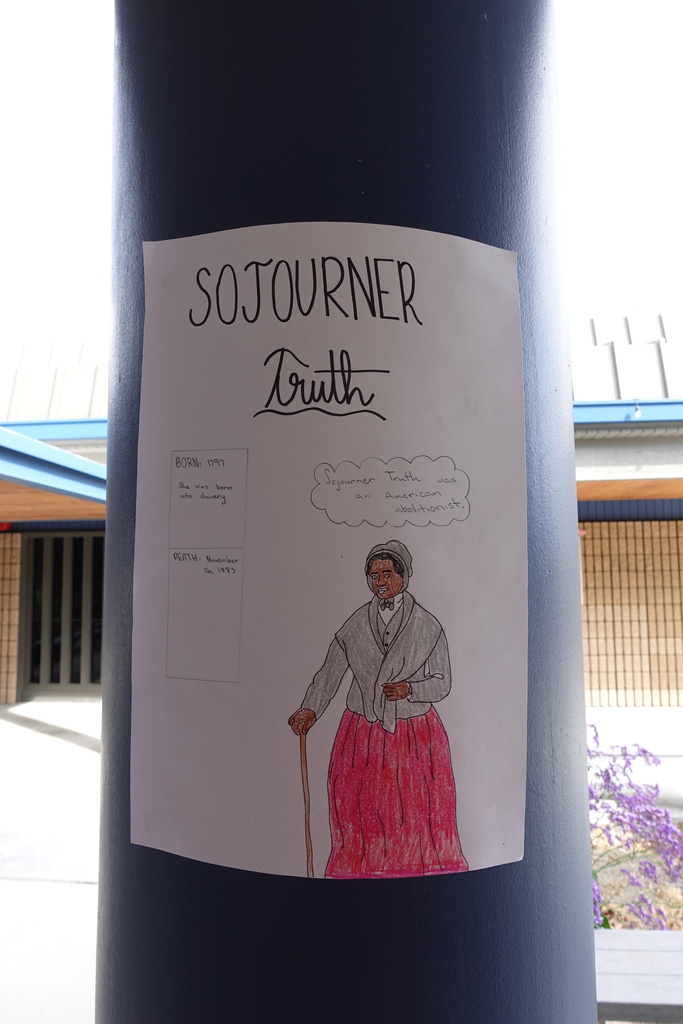 SOJOURNER
Truth
BORN: 1797
She was born
into slavery
Sojourner Truth was
an American
abolitionist.
DEATH: November
26, 1883